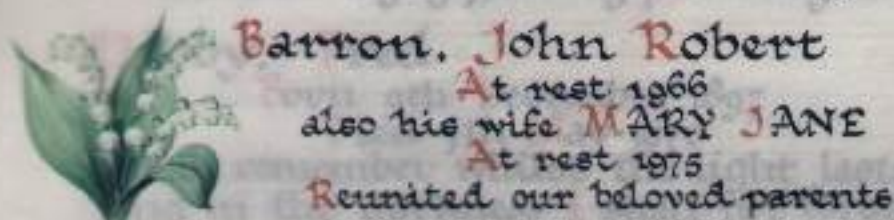 Barron, John Robert
At rest 1966
also his wife MARY JANE
At rest 1975
Reunited our beloved parents